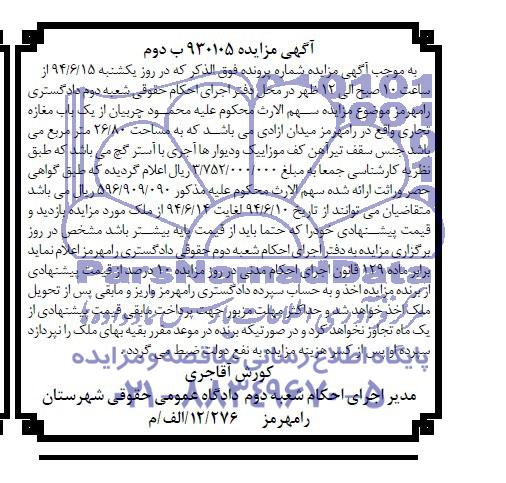 آگهی مزایده ۹۳۰۱۰۵ ب دوم
به موجب آگهی مزایده شماره پرونده فوق الذکر که در روز یکشنبه ۹۴/۶/۱۵ از
ساعت ۱۰ صبح الی ۱۲ ظهر در محل دفتر اجرای احکام حقوقی شعبه دوم دادگستری
رامهرمز موضوع مزایده سهم الارث محکوم علیه محمود چربیان از یک باب مغازه
تجاری واقع در رامهرمز میدان ازادی می باشد که به مساحت ۲۶/۸۰ متر مربع می
باشد جنس سقف تیرآهن کف موزاییک ودیوار ها آجری با آستر گچ می باشد که طبق
نظریه کارشناسی جمعا به مبلغ ۳/۷۵۲/۰۰۰/۰۰۰ ریال اعلام گردیده که طبق گواهی
حصر وراثت ارائه شده سهم الارث محکوم علیه مذکور ۵۹۶/۹۰۹/۰۹۰ ریال می باشد
متقاضیان می توانند از تاریخ ۹۴/۶/۱۰ لغایت ۹۴/۶/۱۴ از ملک مورد مزایده بازدید و
قیمت پیشنهادی خودرا که حتما باید از قیمت پایه بیشتر باشد مشخص در روز
برگزاری مزایده به دفتر اجرای احکام شعبه دوم حقوقی دادگستری رامهرمز اعلام نماید
برابر ماده ۱۲۹ قانون اجرای احکام مدنی در روز مزایده ۱۰ درصد از قیمت پیشنهادی
از برنده مزایده اخذ و به حساب سپرده دادگستری رامهرمز واریز و مابقی پس از تحویل
ملک اخذ خواهد شد و حداکثر مهلت مزبور جهت پرداخت مابقی قیمت پیشنهادی از
یک ماه تجاوز نخواهد کرد و در صورتیکه برنده در موعد مقرر بقیه بهای ملک را نپردازد
سپرده او پس از کسر هزینه مزایده به نفع دولت ضبط می گردد.
کورش آقاجری
مدیر اجرای احکام شعبه دوم دادگاه عمومی حقوقی شهرستان
رامهرمز ۱۲/۲۷۶/الف/م
ParsNamadData
پایگاه اطلاع رسانی مناقصه و مزایده
۰۲۱-۸۸۳۴۹۶۷۰-۵